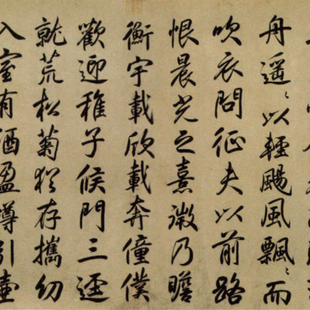 舟遥〻以輕颺風飄〻而
吹衣問征夫以前路
恨晨光之熹微乃瞻
衡宇載欣載奔僮僕
歡迎稚子候門三逕
就荒松菊猶存攜幼
入室有酒盈樽引壺